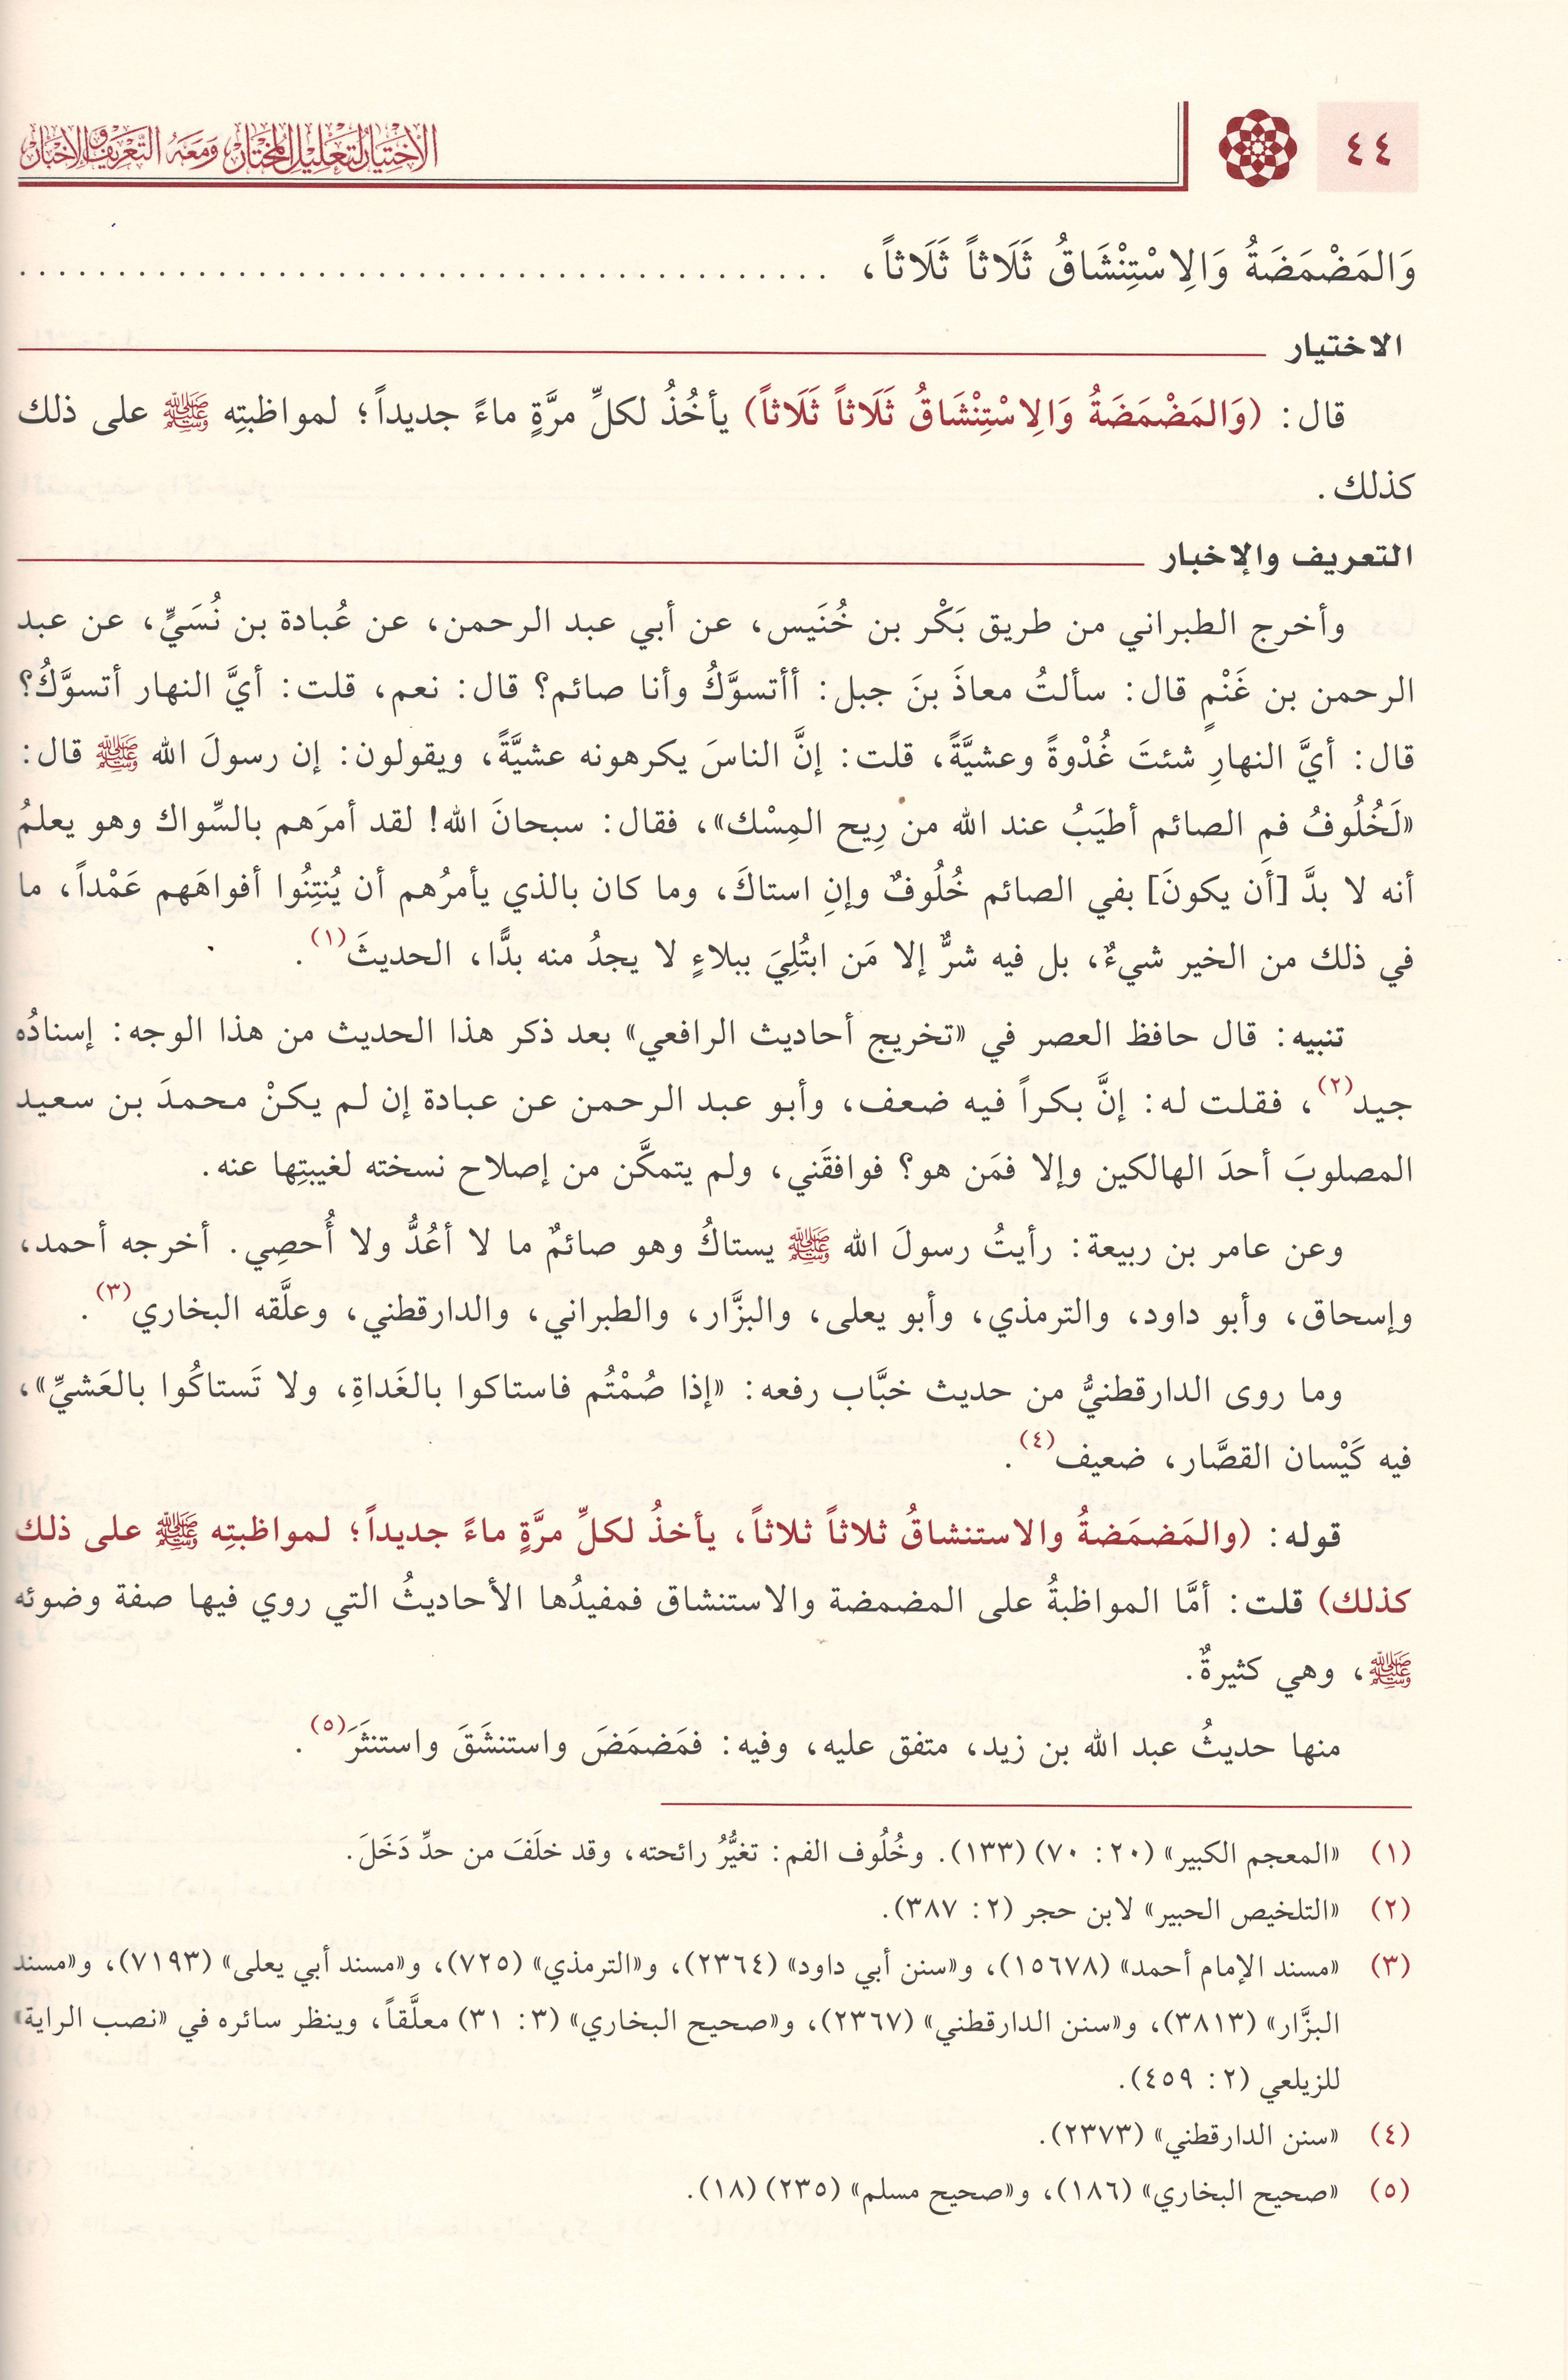 ٤٤
الاختيار لتعليل المختار ومعه التعريف والإخبار
وَالمَضْمَضَةُ وَالِاسْتِنْشَاقُ ثَلَاثاً ثَلَاثاً، . . . . . . . . . . . . . . . . . . . . . . . . . . . . . . . . . . . . . . .
الاختيار
قال: (وَالمَضْمَضَةُ وَالِاسْتِنْشَاقُ ثَلَاثاً ثَلَاثاً) يأخُذُ لكلِّ مرَّةٍ ماءً جديداً؛ لمواظبتِه ﷺ على ذلك
كذلك.
التعريف والإخبار
وأخرج الطبراني من طريق بَكْر بن خُنَيس، عن أبي عبد الرحمن، عن عُبادة بن نُسَيٍّ، عن عبد
الرحمن بن غَنْمٍ قال: سألتُ معاذَ بنَ جبل: أأتسوَّكُ وأنا صائم؟ قال: نعم، قلت: أيَّ النهار أتسوَّكُ؟
قال: أيَّ النهارِ شئتَ غُدْوةً وعشيَّةً، قلت: إنَّ الناسَ يكرهونه عشيَّةً، ويقولون: إن رسولَ الله ﷺ قال:
«لَخُلُوفُ فمِ الصائم أطيَبُ عند الله من رِيح المِسْك»، فقال: سبحانَ الله! لقد أمرَهم بالسِّواك وهو يعلمُ
أنه لا بدَّ [أن يكونَ] بفي الصائم خُلُوفٌ وإنِ استاكَ، وما كان بالذي يأمرُهم أن يُنتِنُوا أفواهَهم عَمْداً، ما
في ذلك من الخير شيءٌ، بل فيه شرٌّ إلا مَن ابتُلِيَ ببلاءٍ لا يجدُ منه بدًّا، الحديثَ(١).
تنبيه: قال حافظ العصر في «تخريج أحاديث الرافعي» بعد ذكر هذا الحديث من هذا الوجه: إسنادُه
جيد(٢)، فقلت له: إنَّ بكراً فيه ضعف، وأبو عبد الرحمن عن عبادة إن لم يكنْ محمدَ بن سعيد
المصلوبَ أحدَ الهالكين وإلا فمَن هو؟ فوافقَني، ولم يتمكَّن من إصلاح نسخته لغيبتِها عنه.
وعن عامر بن ربيعة: رأيتُ رسولَ الله ﷺ يستاكُ وهو صائمٌ ما لا أعُدُّ ولا أُحصِي. أخرجه أحمد،
وإسحاق، وأبو داود، والترمذي، وأبو يعلى، والبزَّار، والطبراني، والدارقطني، وعلَّقه البخاري(٣).
وما روى الدارقطنيُّ من حديث خبَّاب رفعه: «إذا صُمْتُم فاستاكوا بالغَداةِ، ولا تَستاكُوا بالعَشيِّ»،
فيه كَيْسان القصَّار، ضعيف(٤).
قوله: (والمَضمَضةُ والاستنشاقُ ثلاثاً ثلاثاً، يأخذُ لكلِّ مرَّةٍ ماءً جديداً؛ لمواظبتِه ﷺ على ذلك
كذلك) قلت: أمَّا المواظبةُ على المضمضة والاستنشاق فمفيدُها الأحاديثُ التي روي فيها صفة وضوئه
ﷺ، وهي كثيرةٌ.
منها حديثُ عبد الله بن زيد، متفق عليه، وفيه: فمَضمَضَ واستنشَقَ واستنثَرَ(٥).
(١) «المعجم الكبير» (٢٠: ٧٠) (١٣٣). وخُلُوف الفم: تغيُّرُ رائحته، وقد خلَفَ من حدِّ دَخَلَ.
(٢) «التلخيص الحبير» لابن حجر (٢: ٣٨٧).
(٣) «مسند الإمام أحمد» (١٥٦٧٨)، و«سنن أبي داود» (٢٣٦٤)، و«الترمذي» (٧٢٥)، و«مسند أبي يعلى» (٧١٩٣)، و«مسند
البزَّار» (٣٨١٣)، و«سنن الدارقطني» (٢٣٦٧)، و«صحيح البخاري» (٣: ٣١) معلَّقاً، وينظر سائره في «نصب الراية»
للزيلعي (٢: ٤٥٩).
(٤) «سنن الدارقطني» (٢٣٧٣).
(٥) «صحيح البخاري» (١٨٦)، و«صحيح مسلم» (٢٣٥) (١٨).